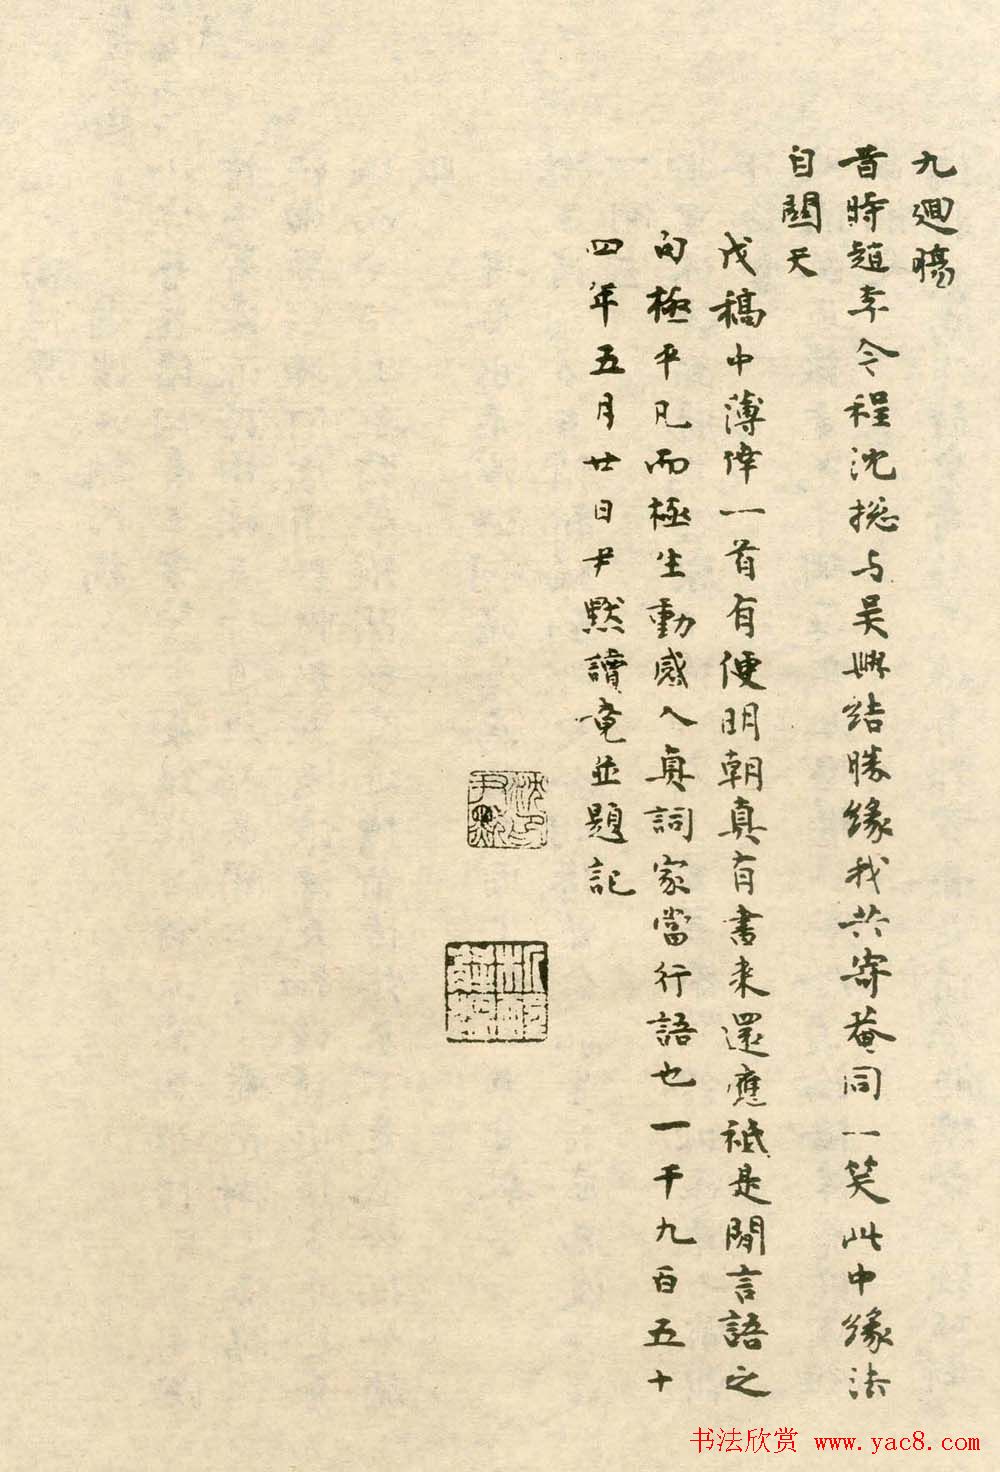 九迴腸
昔時趙李今程沈總与吴興結勝緣我共寄菴同一笑此中緣法
自關天
戊稿中薄倖一首有便明朝真有書来還應祗是閒言語之
句極平凡而極生動感人真詞家當行語也一千九百五十
四年五月廿日尹默讀竟並題記
沈尹默印
书法欣赏 www.yac8.com